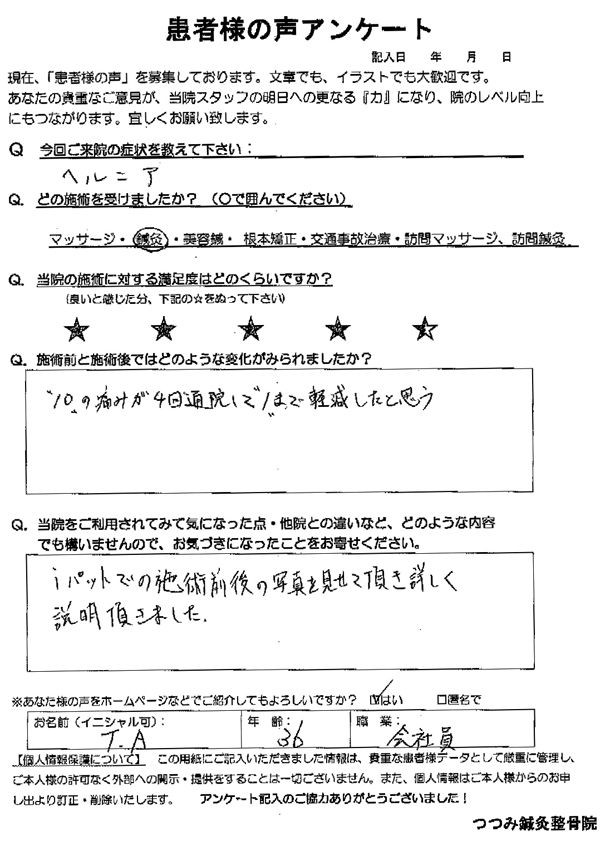 患者様の声アンケート
記入日 年 月 日
現在、「患者様の声」を募集しております。文章でも、イラストでも大歓迎です。
あなたの貴重なご意見が、当院スタッフの明日への更なる『力』になり、院のレベル向上
にもつながります。宜しくお願い致します。
Q 今回ご来院の症状を教えて下さい:
ヘルニア
Q. どの施術を受けましたか?(○で囲んでください)
マッサージ・鍼灸・美容鍼・根本矯正・交通事故治療・訪問マッサージ、訪問鍼灸
Q. 当院の施術に対する満足度はどのくらいですか?
(良いと感じた分、下記の☆をぬって下さい)
★ ★ ★ ★ ★
Q. 施術前と施術後ではどのような変化がみられましたか?
"10"の痛みが4回通院して"1"まで軽減したと思う
Q. 当院をご利用されてみて気になった点・他院との違いなど、どのような内容
でも構いませんので、お気づきになったことをお寄せください。
iパットでの施術前後の写真を見せて頂き詳しく
説明頂きました.
※あなた様の声をホームページなどでご紹介してもよろしいですか? ☑はい □匿名で
お名前(イニシャル可): 年齢: 職業:
T.A 36 会社員
【個人情報保護について】 この用紙にご記入いただきました情報は、貴重な患者様データとして厳重に管理し、
ご本人様の許可なく外部への開示・提供をすることは一切ございません。また、個人情報はご本人様からのお申
し出より訂正・削除いたします。 アンケート記入のご協力ありがとうございました!
つつみ鍼灸整骨院